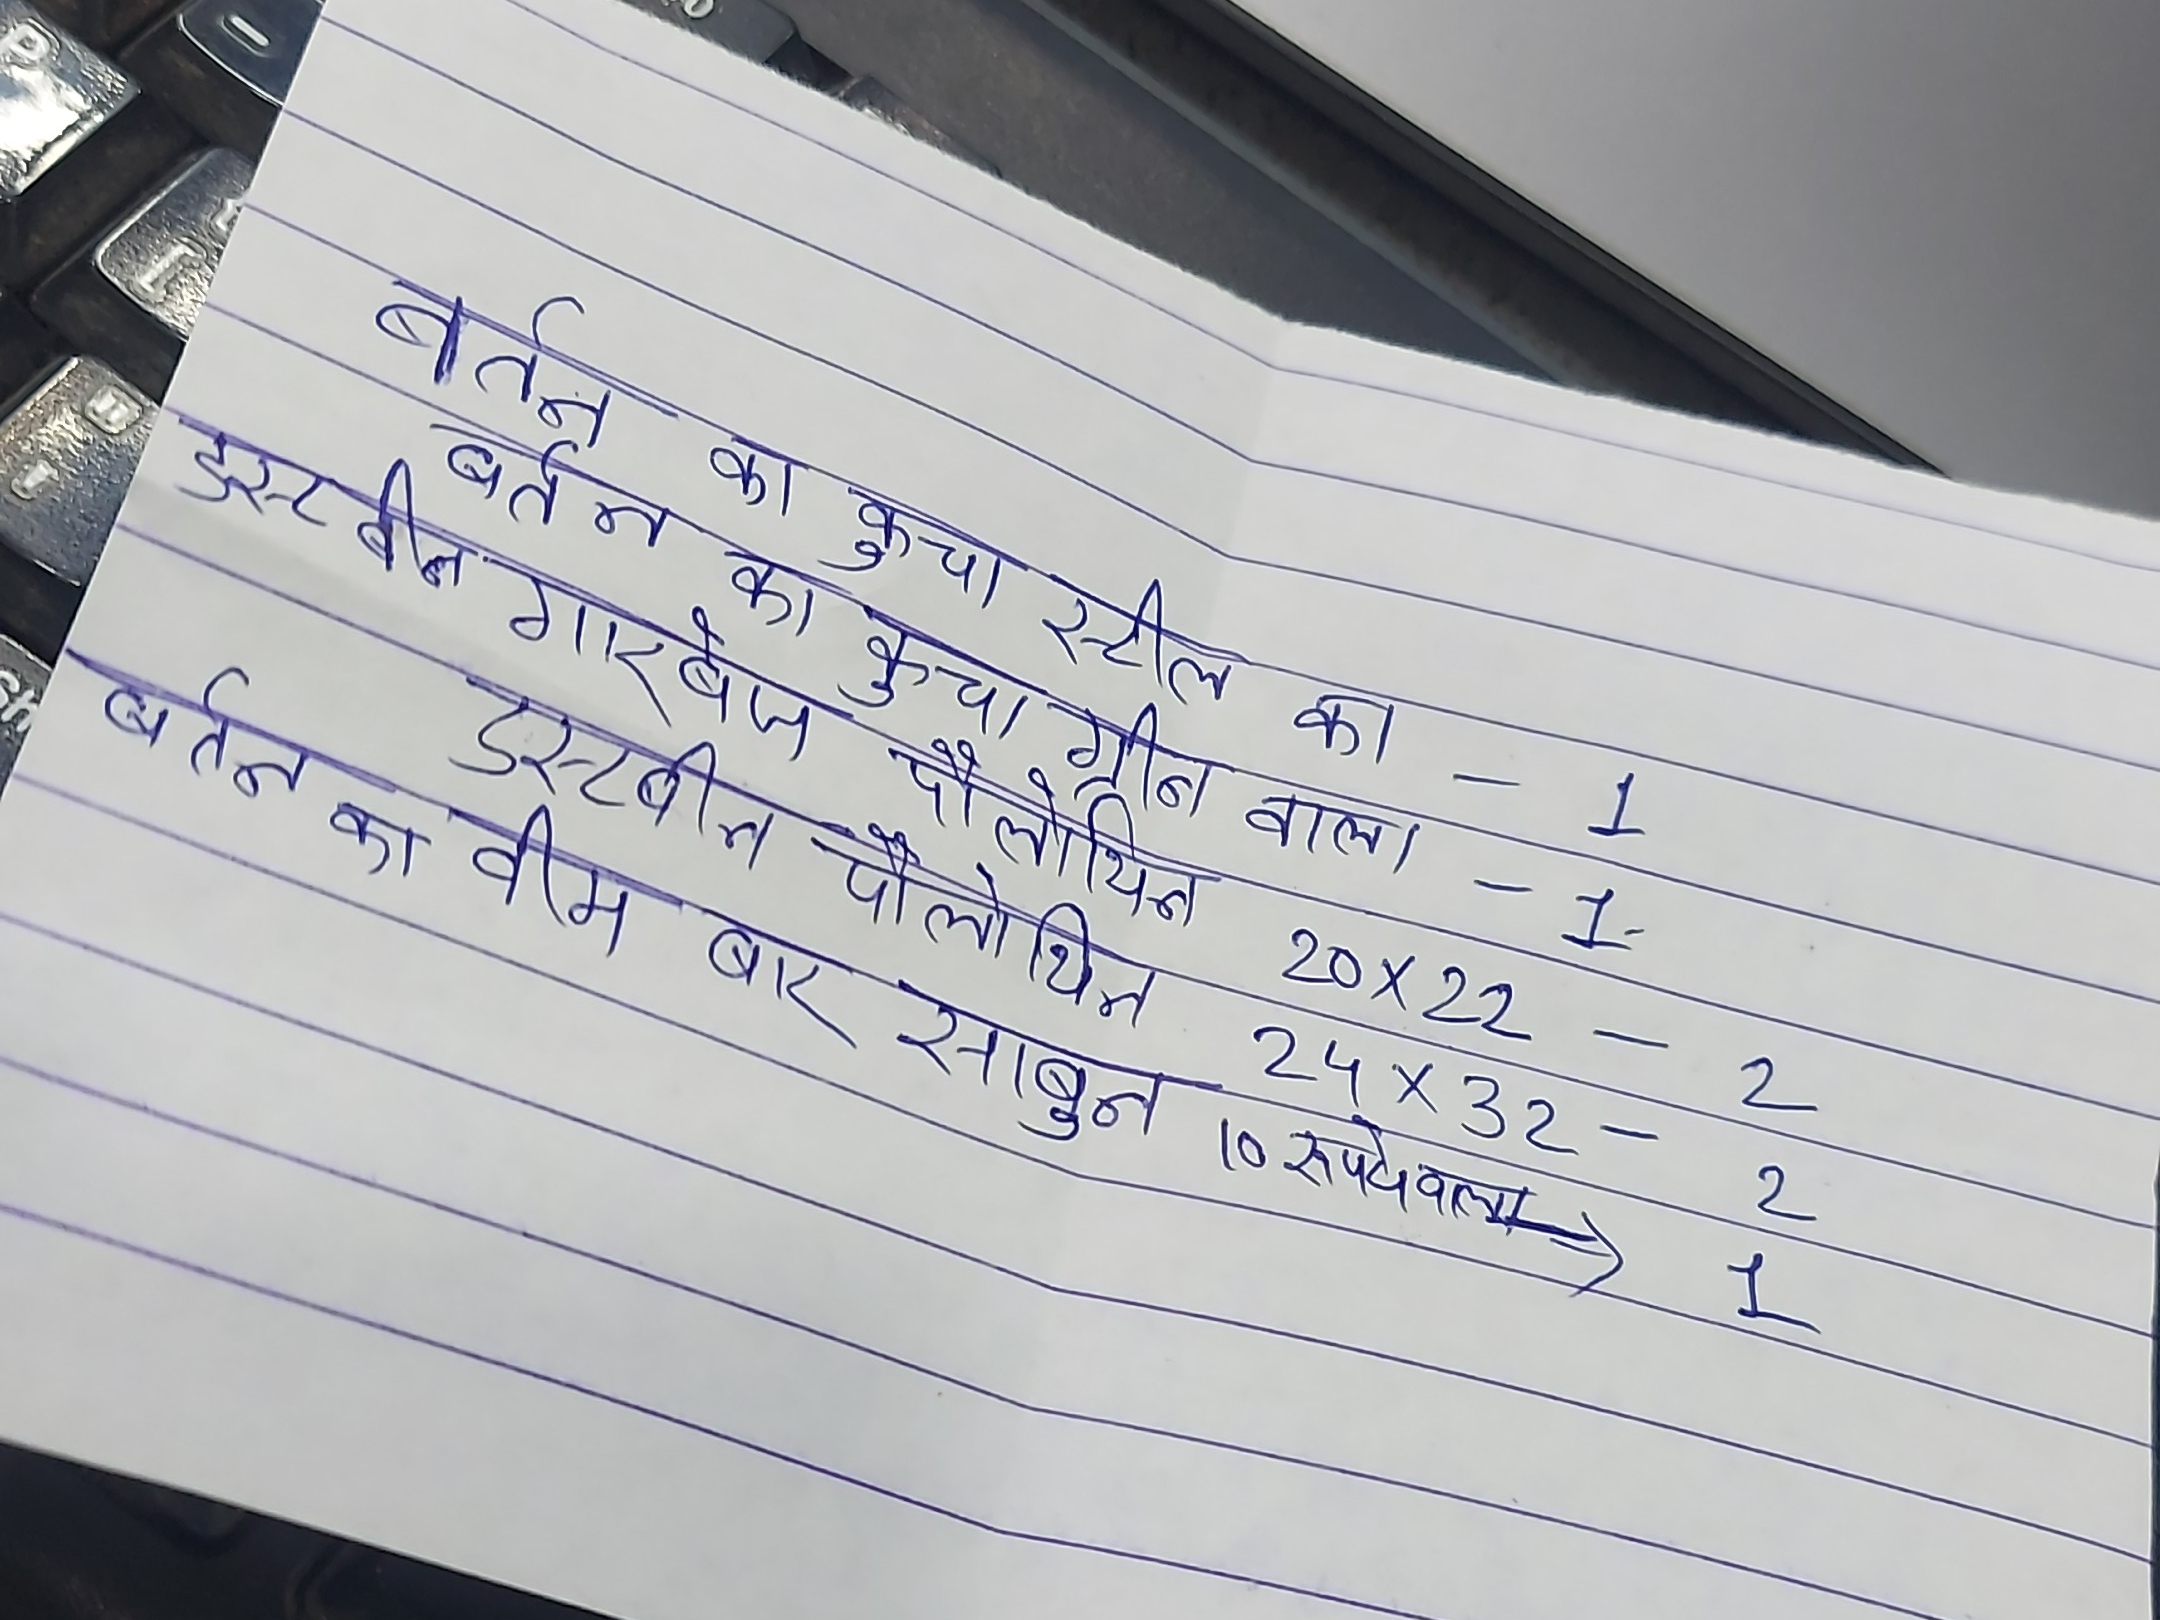 बर्तन का कुचा स्टील का - 1
बर्तन का कुचा ग्रीन वाला - 1
डस्टबीन गारबेज पौलोथिन 20x22 - 2
डस्टबीन पौलोथिन 24x32 - 2
बर्तन का वीम बार साबुन 10 रूपयेवाला → 1